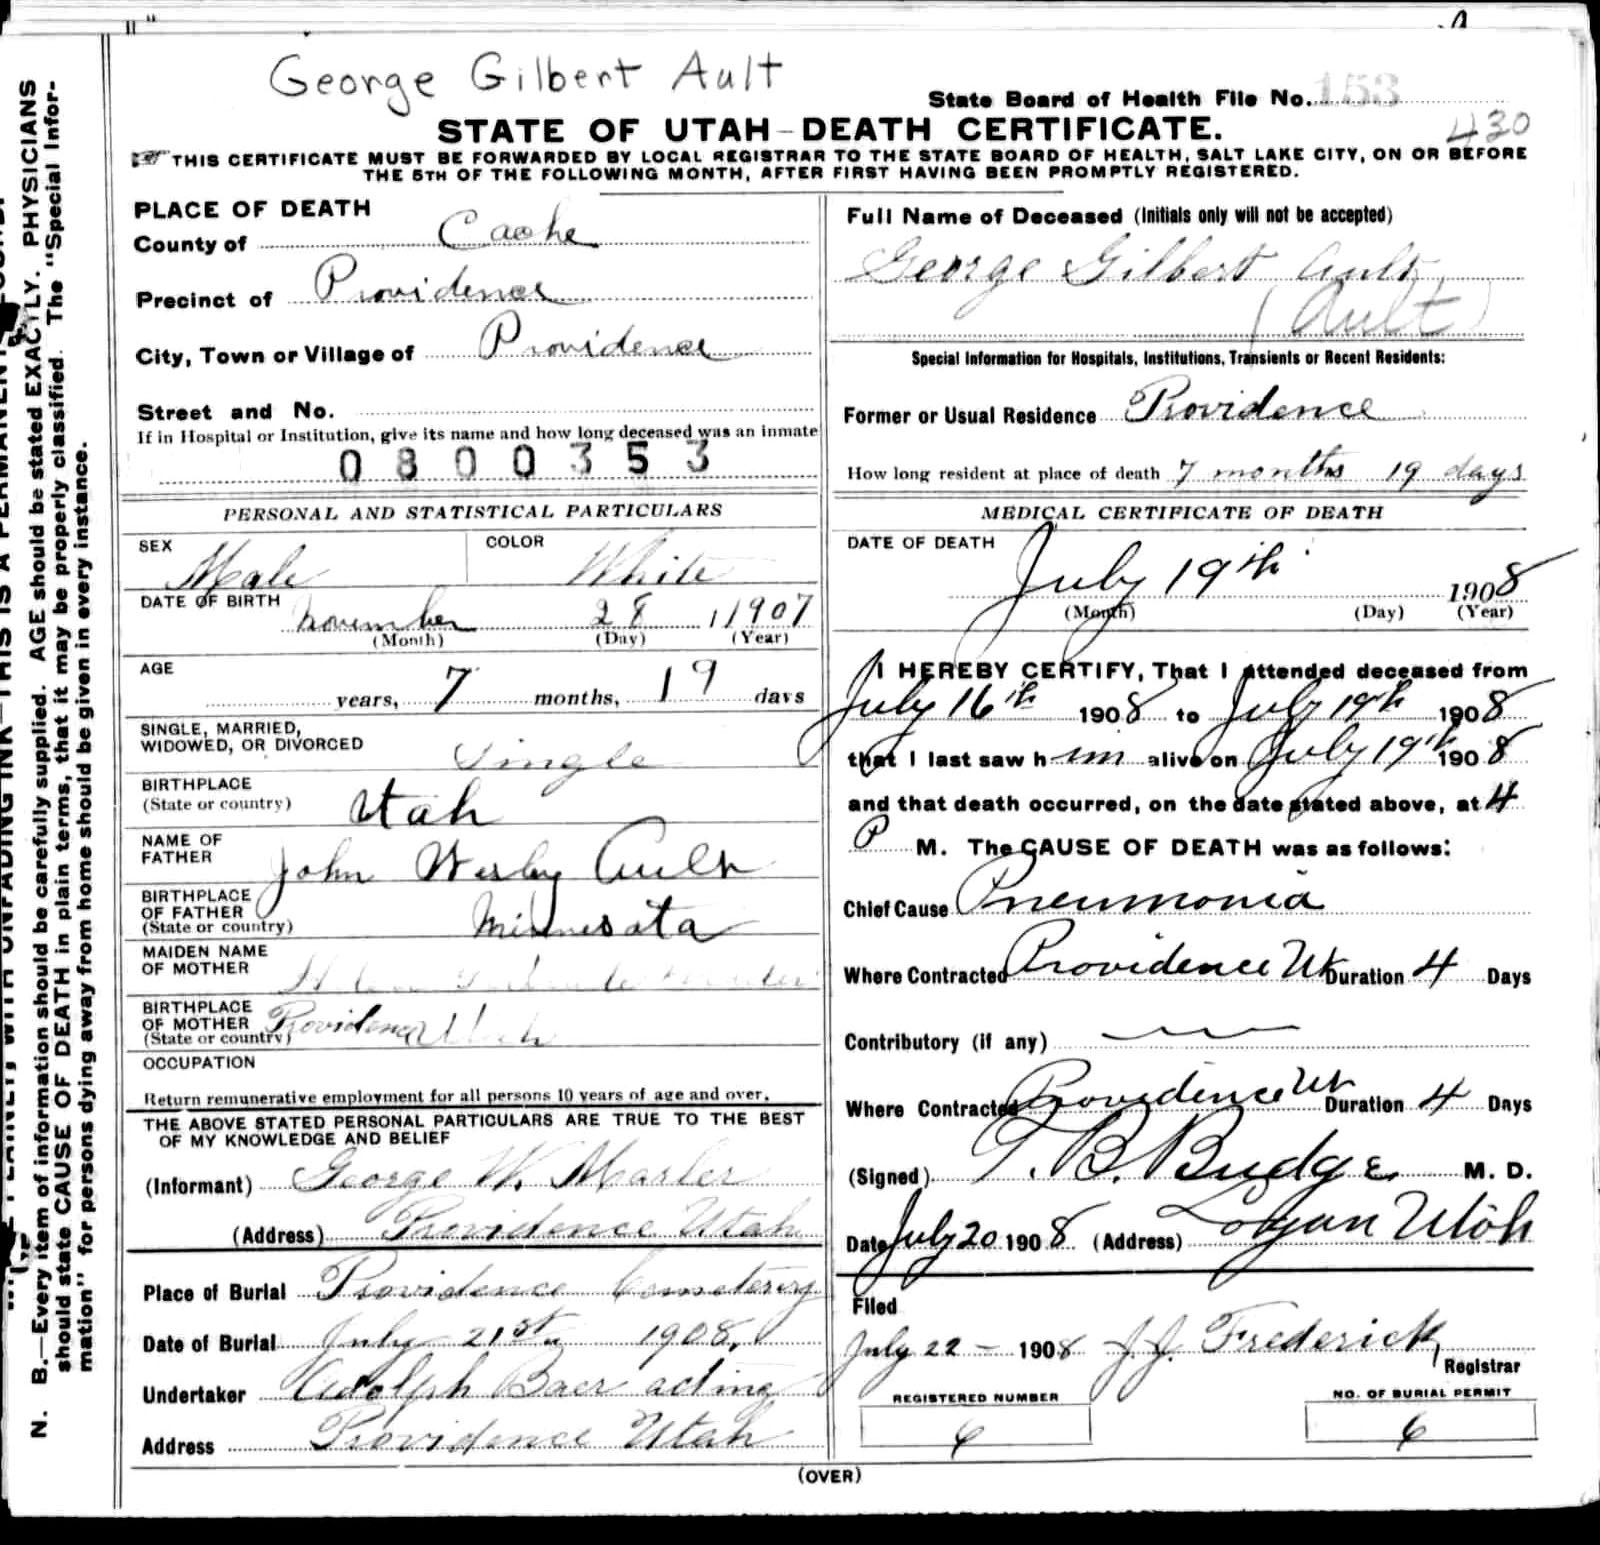 George Gilbert Ault
State Board of Health File No. 153
430
STATE OF UTAH-DEATH CERTIFICATE.
THIS CERTIFICATE MUST BE FORWARDED BY LOCAL REGISTRAR TO THE STATE BOARD OF HEALTH, SALT LAKE CITY, ON OR BEFORE
THE 5TH OF THE FOLLOWING MONTH, AFTER FIRST HAVING BEEN PROMPTLY REGISTERED.
PLACE OF DEATH
County of Cache
Precinct of Providence
City, Town or Village of Providence
Street and No.
If in Hospital or Institution, give its name and how long deceased was an inmate
0800353
PERSONAL AND STATISTICAL PARTICULARS
SEX Male COLOR White
DATE OF BIRTH November 28 1907
(Month) (Day) (Year)
AGE
years, 7 months, 19 days
SINGLE, MARRIED,
WIDOWED, OR DIVORCED Single
BIRTHPLACE
(State or country) Utah
NAME OF
FATHER John Wesley Ault
BIRTHPLACE
OF FATHER
(State or country) Minnesota
MAIDEN NAME
OF MOTHER
BIRTHPLACE
OF MOTHER
(State or country) Providence Utah
OCCUPATION
Return remunerative employment for all persons 10 years of age and over.
THE ABOVE STATED PERSONAL PARTICULARS ARE TRUE TO THE BEST
OF MY KNOWLEDGE AND BELIEF
(Informant) George W. Marler
(Address) Providence Utah
Place of Burial Providence Cemetery
Date of Burial July 21st 1908.
Undertaker Adolph Baer acting
Address Providence Utah
Full Name of Deceased (Initials only will not be accepted)
George Gilbert Ault
(Ault)
Special Information for Hospitals, Institutions, Transients or Recent Residents:
Former or Usual Residence Providence
How long resident at place of death 7 months 19 days
MEDICAL CERTIFICATE OF DEATH
DATE OF DEATH
July 19th 1908
(Month) (Day) (Year)
I HEREBY CERTIFY, That I attended deceased from
July 16th 1908 to July 19th 1908
that I last saw him alive on July 19th 1908
and that death occurred, on the date stated above, at 4
P M. The CAUSE OF DEATH was as follows:
Chief Cause Pneumonia
Where Contracted Providence Ut Duration 4 Days
Contributory (if any)
Where Contracted Providence Ut Duration 4 Days
(Signed) T. B. Budge M. D.
Date July 20 1908 (Address) Logan Utah
Filed
July 22 - 1908 J. J. Frederick
Registrar
REGISTERED NUMBER
6
NO. OF BURIAL PERMIT
6
(OVER)
N. B.—Every item of information should be carefully supplied. AGE should be stated EXACTLY. PHYSICIANS
should state CAUSE OF DEATH in plain terms, that it may be properly classified. The "Special Infor-
mation" for persons dying away from home should be given in every instance.